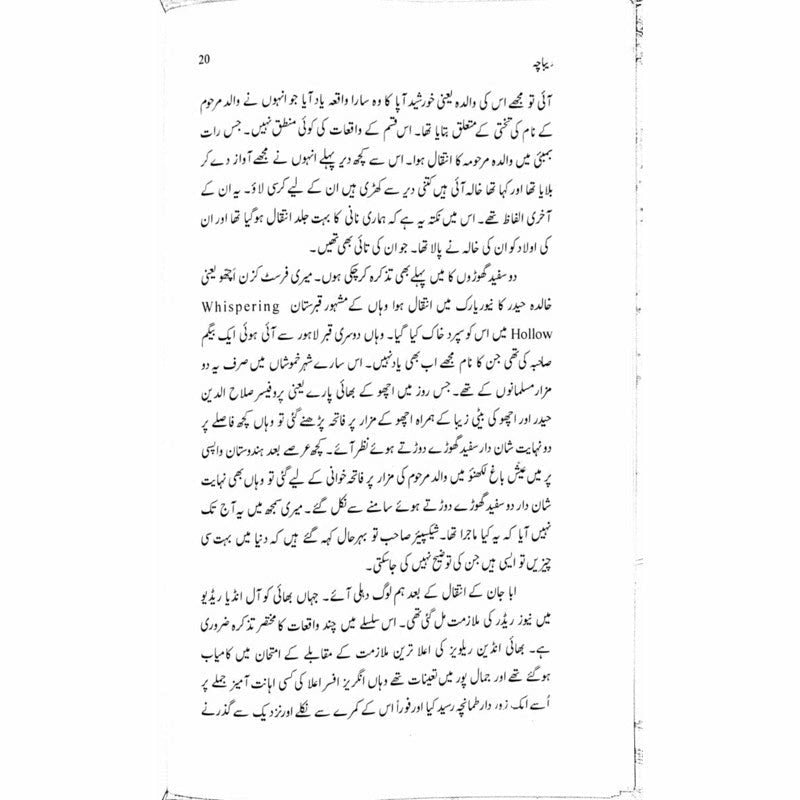 دیباچہ
20
آئی تو مجھے اس کی والدہ یعنی خورشید آپا کا وہ سارا واقعہ یاد آیا جو انہوں نے والد مرحوم
کے نام کی تختی کے متعلق بتایا تھا۔ اس قسم کے واقعات کی کوئی منطق نہیں۔ جس رات
بمبئی میں والدہ مرحومہ کا انتقال ہوا۔ اس سے کچھ دیر پہلے انہوں نے مجھے آواز دے کر
بلایا تھا اور کہا تھا خالہ آئی ہیں کتنی دیر سے کھڑی ہیں ان کے لیے کرسی لاؤ۔ یہ ان کے
آخری الفاظ تھے۔ اس میں نکتہ یہ ہے کہ ہماری نانی کا بہت جلد انتقال ہوگیا تھا اور ان
کی اولاد کو ان کی خالہ نے پالا تھا۔ جو ان کی تائی بھی تھیں۔
دو سفید گھوڑوں کا میں پہلے بھی تذکرہ کرچکی ہوں۔ میری فرسٹ کزن اچھو یعنی
خالدہ حیدر کا نیویارک میں انتقال ہوا وہاں کے مشہور قبرستان Whispering
Hollow میں اس کو سپرد خاک کیا گیا۔ وہاں دوسری قبر لاہور سے آئی ہوئی ایک بیگم
صاحبہ کی تھی جن کا نام مجھے اب بھی یاد نہیں۔ اس سارے شہر خموشاں میں صرف یہ دو
مزار مسلمانوں کے تھے۔ جس روز میں اچھو کے بھائی پارے یعنی پروفیسر صلاح الدین
حیدر اور اچھو کی بیٹی زیبا کے ہمراہ اچھو کے مزار پر فاتحہ پڑھنے گئی تو وہاں کچھ فاصلے پر
دو نہایت شان دار سفید گھوڑے دوڑتے ہوئے نظر آئے۔ کچھ عرصے بعد ہندوستان واپسی
پر میں عیش باغ لکھنؤ میں والد مرحوم کی مزار پر فاتحہ خوانی کے لیے گئی تو وہاں بھی نہایت
شان دار دو سفید گھوڑے دوڑتے ہوئے سامنے سے نکل گئے۔ میری سمجھ میں یہ آج تک
نہیں آیا کہ یہ کیا ماجرا تھا۔ شیکسپیئر صاحب تو بہرحال کہہ گئے ہیں کہ دنیا میں بہت سی
چیزیں تو ایسی ہیں جن کی توضیح نہیں کی جاسکتی۔
ابا جان کے انتقال کے بعد ہم لوگ دہلی آئے۔ جہاں بھائی کو آل انڈیا ریڈیو
میں نیوز ریڈر کی ملازمت مل گئی تھی۔ اس سلسلے میں چند واقعات کا مختصر تذکرہ ضروری
ہے۔ بھائی انڈین ریلویز کی اعلا ترین ملازمت کے مقابلے کے امتحان میں کامیاب
ہوگئے تھے اور جمال پور میں تعینات تھے وہاں انگریز افسر اعلا کی کسی اہانت آمیز جملے پر
اُسے ایک زور دار طمانچہ رسید کیا اور فوراً اس کے کمرے سے نکلے اور نزدیک سے گذرنے